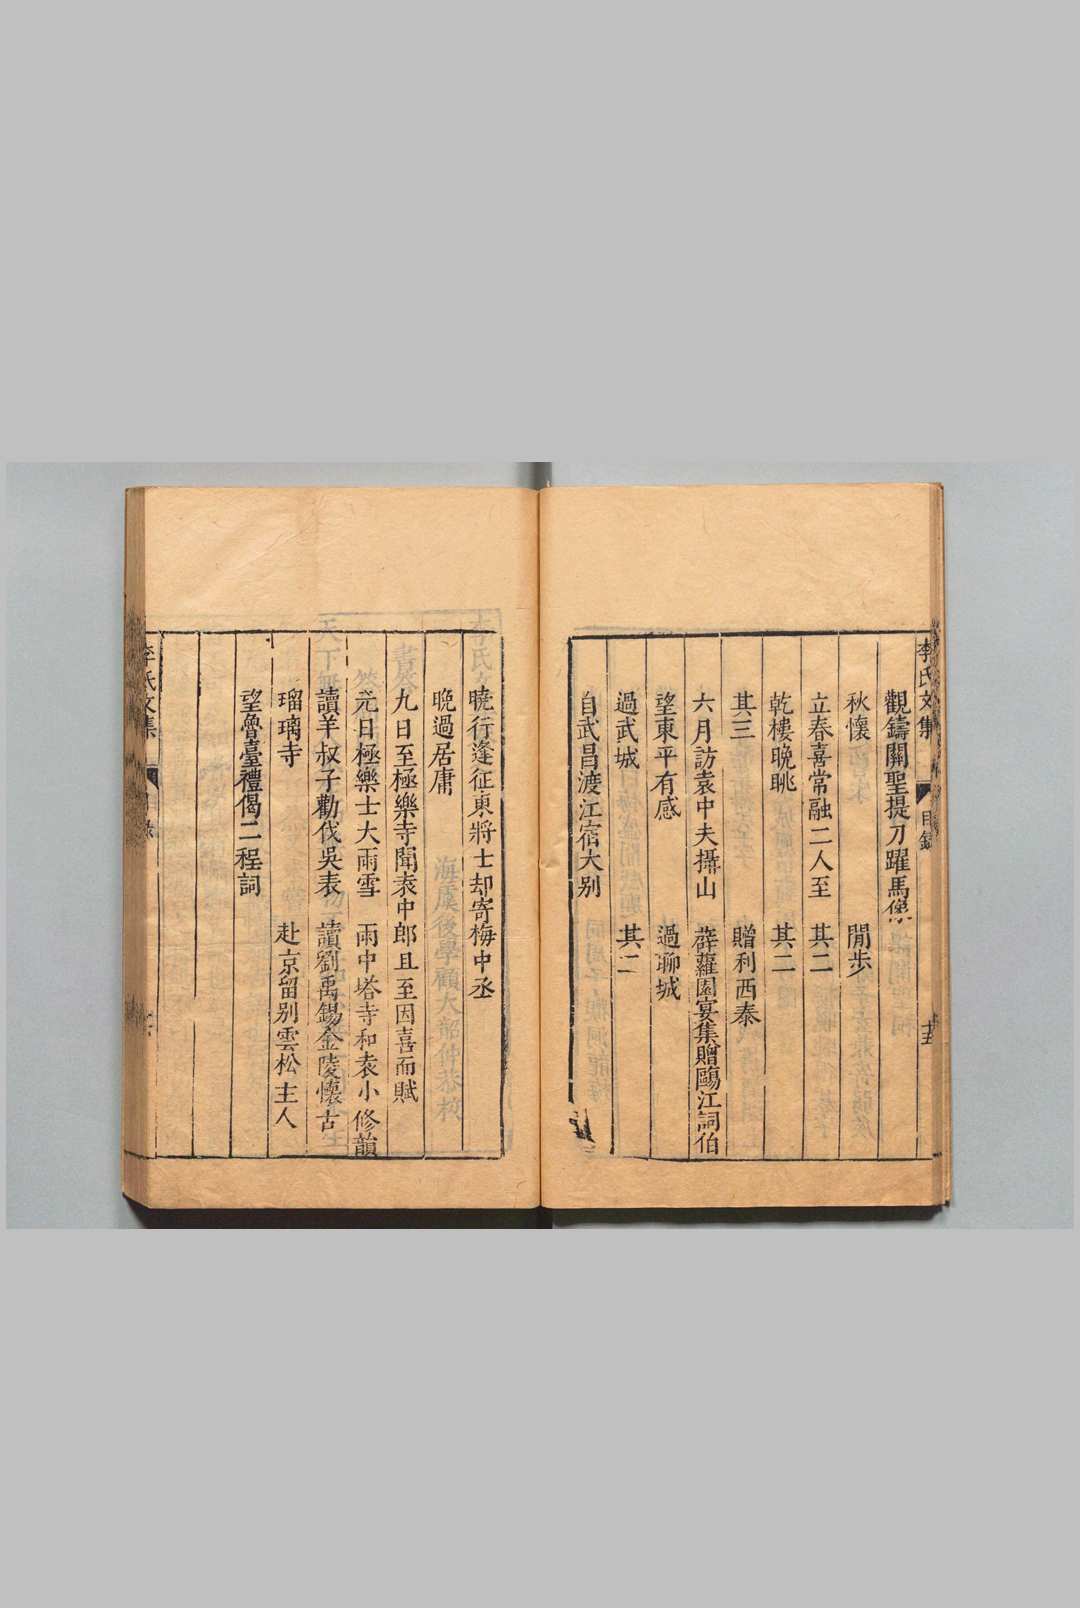 李氏文集 目錄
觀鑄關聖提刀躍馬像
秋懷 閒步
立春喜常融二人至 其二
乾樓晚眺 其二
其三 贈利西泰
六月訪袁中夫攝山 薜蘿園宴集贈鷗江詞伯
望東平有感 過聊城
過武城 其二
自武昌渡江宿大別
曉行逢征東將士却寄梅中丞
晚過居庸
九日至極樂寺聞袁中郎且至因喜而賦
元日極樂士大雨雪 雨中塔寺和袁小修韻
讀羊叔子勸伐吳表 讀劉禹錫金陵懷古
瑠璃寺 赴京留別雲松主人
望魯臺禮偈二程詞
李氏文集